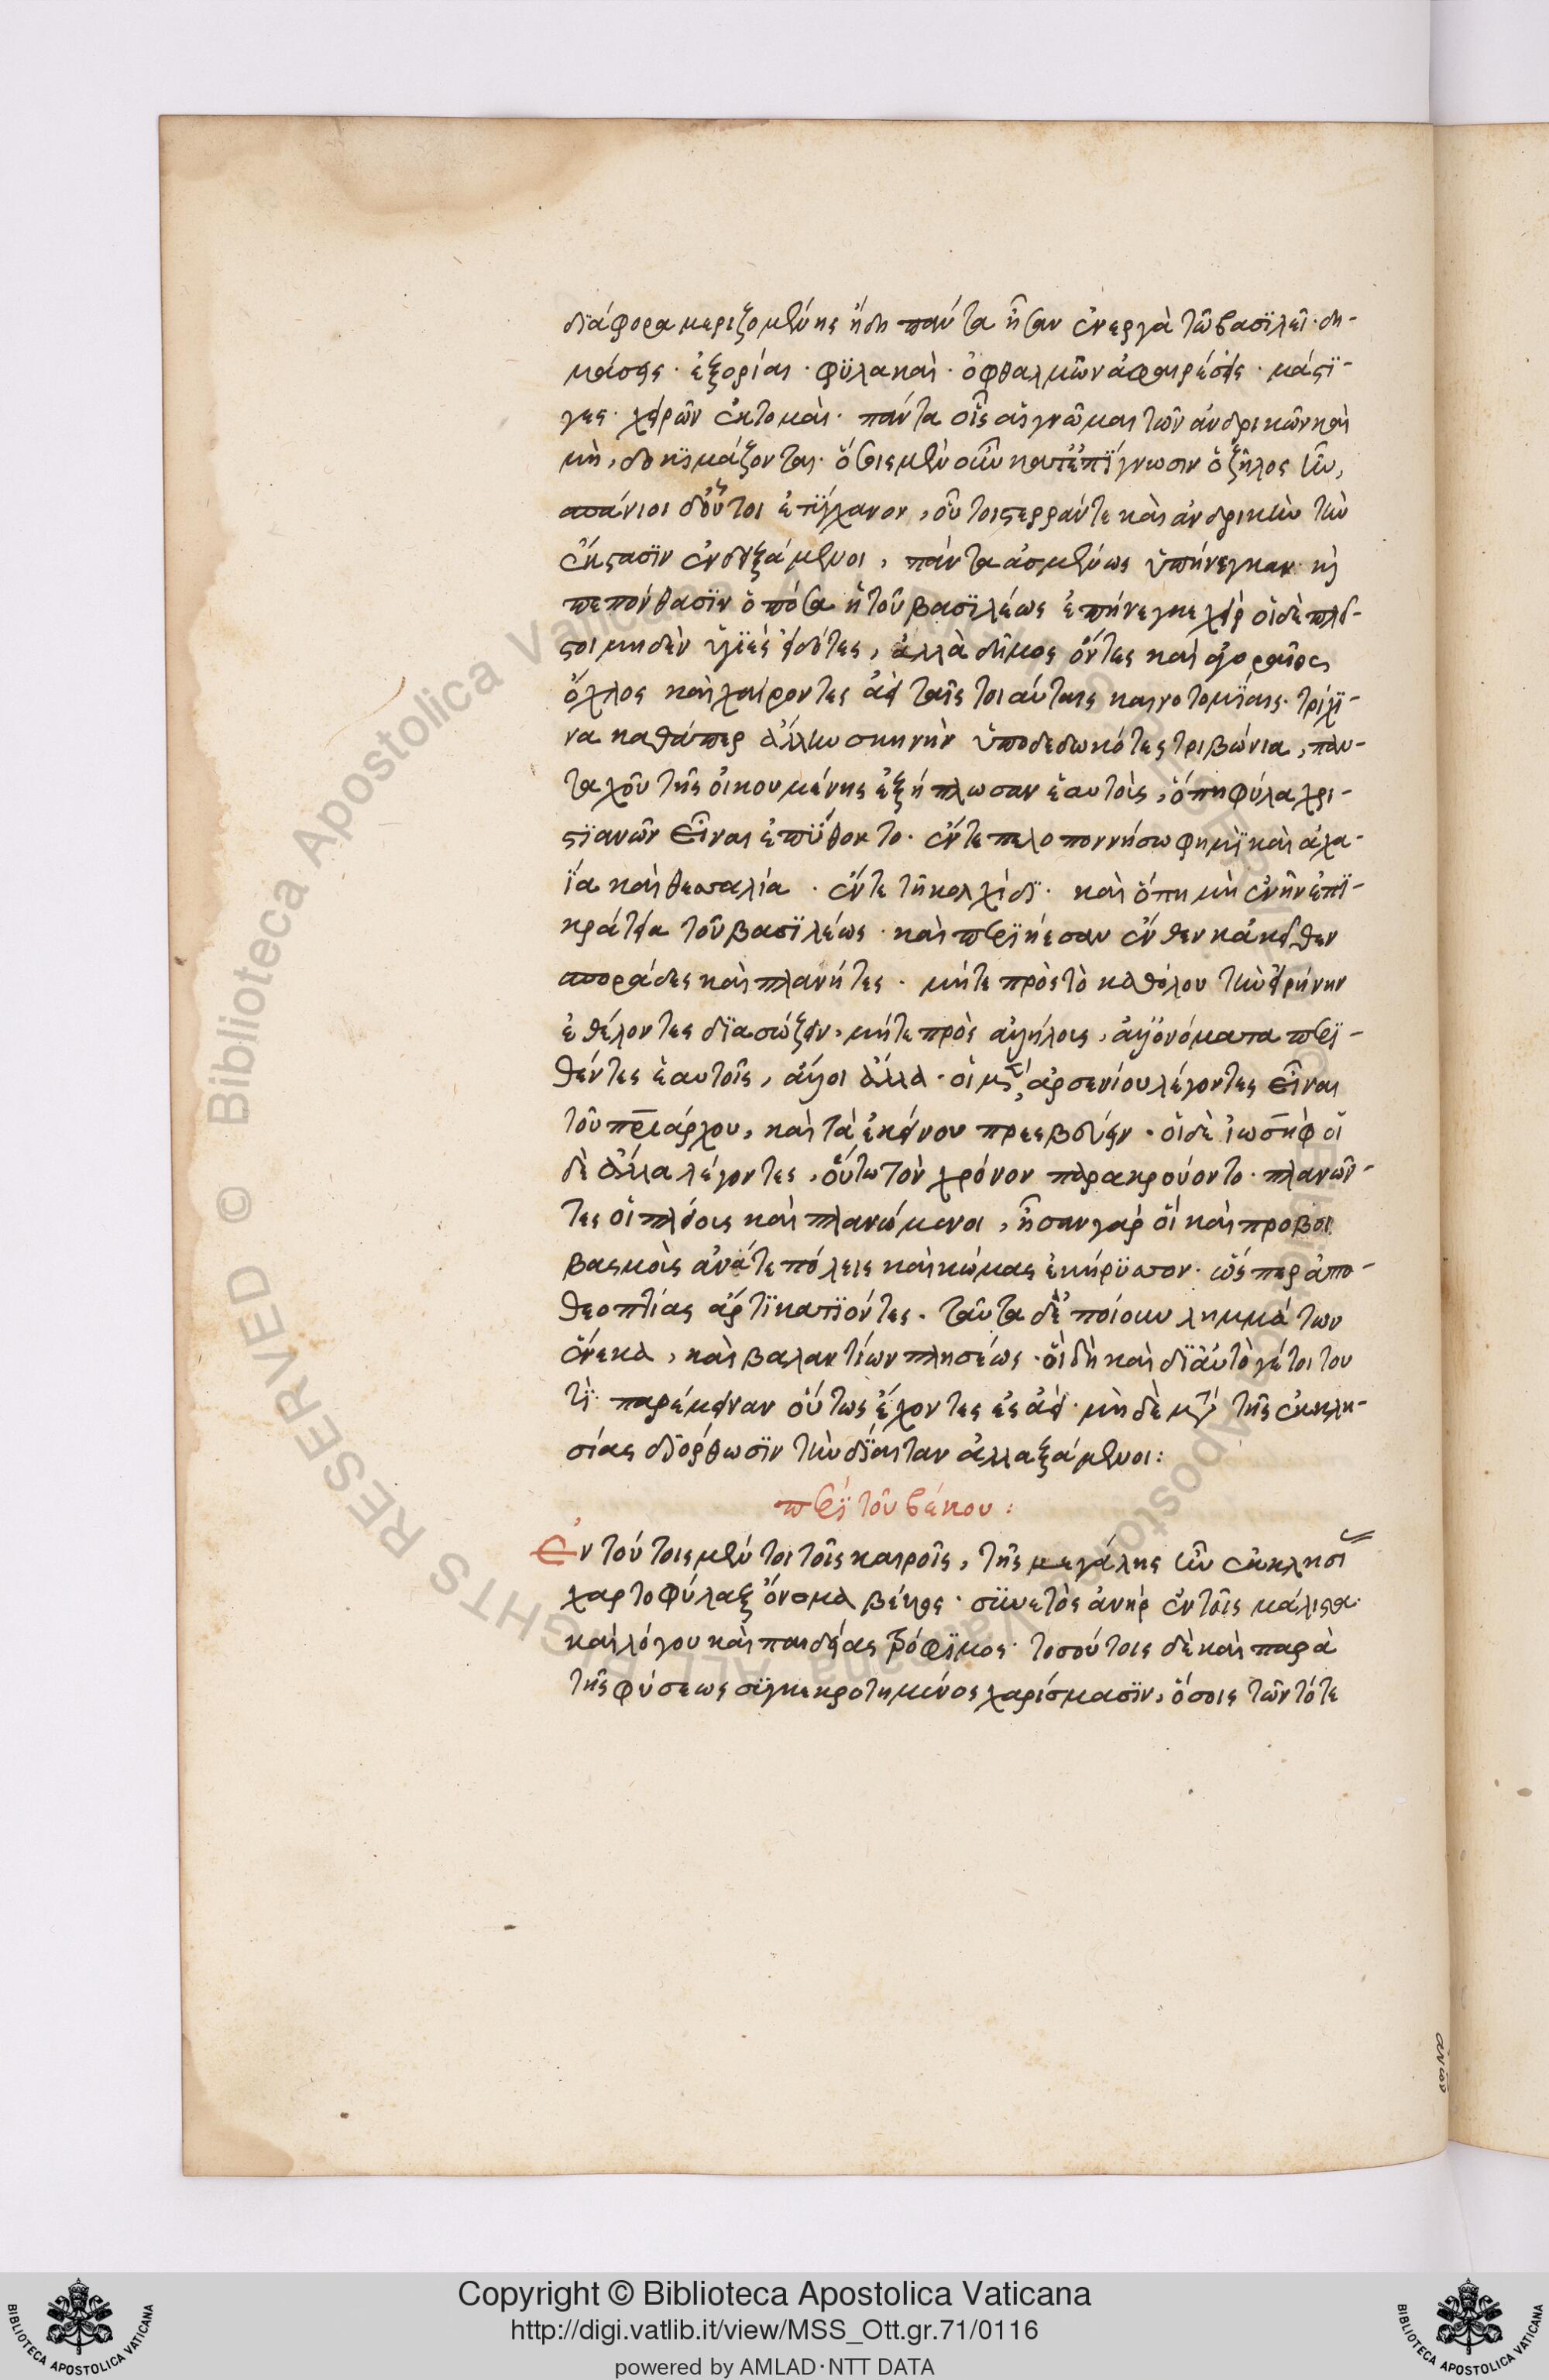 διάφορα μεριζομένης ἤδη πάντα ἦσαν ἐνεργὰ τῶ βασϊλεῖ· δη-
μεύσεις· ἐξορίαι· φϋλακαὶ· ὀφθαλμῶν ἀφαιρέσεις· μάστϊ-
γες· χειρῶν ἐκτομαὶ· πάντα οἷς αἱ γνῶμαι τῶν ἀνδρικῶν καὶ
μὴ, δοκϊμάζονται· ὅσοις μὲν οὖν κατ' ἐπΐγνωσιν ὁ ζῆλος ἦν,
σπάνιοι δ' οὗτοι ἐτΰγχανον, οὗτοι στερράν τε καὶ ἀνδρικὴν τὴν
ἔνστασϊν ἐνδειξάμενοι, πάντα ἀσμένως ὑπήνεγκαν καὶ
πεπόνθασϊν ὁπόσα ἡ τοῦ βασϊλέως ἐπήνεγκε χεὶρ οἱ δὲ πλεῖ-
στοι μηδὲν ὑγϊὲς εἰδότες, ἀλλὰ δῆμος ὄντες καὶ ἀγοραῖος
ὄχλος καὶ χαίροντες ἀεὶ ταῖς τοιαύταις καινοτομΐαις· τρίχϊ-
να καθάπερ ἄλλην σκηνὴν ὑποδεδωκότες τριβώνια, παν-
ταχοῦ τῆς οἰκουμένης ἐξήπλωσαν ἑαυτοὺς, ὅπη φύλα χρι-
στϊανῶν εἶναι ἐπΰθοντο· ἔν τε πελοποννήσω φημϊ καὶ ἀχα-
ΐα καὶ θεσσαλία· ἔν τε τῆ κολχίδϊ· καὶ ὅπη μὴ ἐνῆν ἐπϊ-
κράτεια τοῦ βασϊλέως· καὶ περϊήεσαν ἔνθεν κἀκεῖθεν
σποράδες καὶ πλανήτες· μήτε πρὸς τὸ καθόλου τὴν εἰρήνην
ἐθέλοντες δϊασώζειν, μήτε πρὸς ἀλλήλους, ἀλλ' ὀνόματα περϊ-
θέντες ἑαυτοῖς, ἄλλοι ἄλλα· οἱ μετ' ἀρσενίου λέγοντες εἶναι
τοῦ πριάρχου, καὶ τὰ ἐκείνου πρεσβεύειν· οἱ δὲ ἰωσὴφ οἱ
δὲ ἄλλα λέγοντες, οὕτω τὸν χρόνον παρακρούοντο· πλανῶν-
τες οἱ πλείους καὶ πλανώμενοι, ἦσαν γὰρ οἳ καὶ προβι
βασμοὺς ἀνά τε πόλεις καὶ κώμας ἐκήρϋσσον· ὥσπερ ἀπο-
θεοπτίας ἄρτϊ κατϊόντες· ταῦτα δ' ἐποίουν λημμάτων
ἕνεκα, καὶ βαλαντίων πλησέως· οἳ δὴ καὶ δϊ' αὐτὸ γέ τοι του
τϊ· παρέμειναν οὕτως ἔχοντες ἐς ἀεὶ· μὴ δὲ μετὰ τῆς ἐκκλη-
σίας διόρθωσϊν τὴν δΐαιταν ἀλλαξάμενοι:
περϊ τοῦ βέκου:
Ἐν τούτοις μέν τοι τοῖς καιροῖς, τῆς μεγάλης ἦν ἐκκλησί
χαρτοφύλαξ ὄνομα βέκκος· σϋνετὸς ἀνὴρ ἐν τοῖς μάλιστα·
καὶ λόγου καὶ παιδείας τρόφϊμος· τοσούτοις δὲ καὶ παρὰ
τῆς φύσεως σϋγκεκροτημένος χαρίσμασϊν, ὅσοις τῶν τότε
Copyright © Biblioteca Apostolica Vaticana
http://digi.vatlib.it/view/MSS_Ott.gr.71/0116
powered by AMLAD·NTT DATA